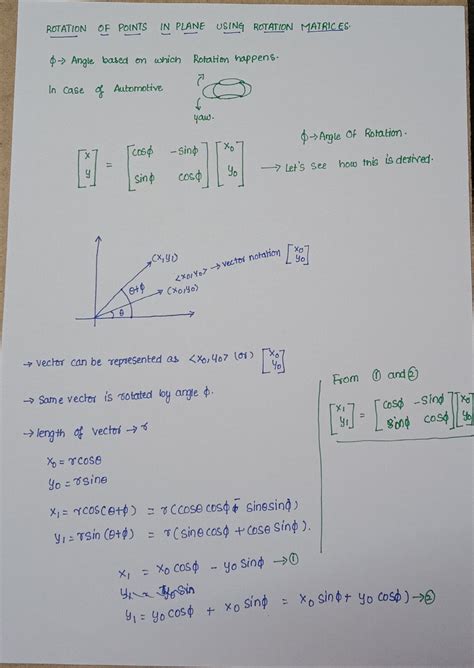 ROTATION OF POINTS IN PLANE USING ROTATION MATRICES.
ϕ → Angle based on which Rotation happens.
In Case of Automotive
yaw.
ϕ → Angle Of Rotation.
[x y] = [cosϕ -sinϕ sinϕ cosϕ] [x₀ y₀] → Let's see how this is derived.
(x₁y₁)
<x₀,y₀> → vector notation [x₀ y₀]
(x₀,y₀)
θ+ϕ
θ
→ vector can be represented as <x₀,y₀> (or) [x₀ y₀]
→ Same vector is rotated by angle ϕ.
→ length of vector → r
x₀ = rcosθ
y₀ = rsinθ
x₁ = rcos(θ+ϕ) = r(cosθ cosϕ - sinθsinϕ)
y₁ = rsin(θ+ϕ) = r(sinθ cosϕ + cosθ sinϕ).
x₁ = x₀ cosϕ - y₀ sinϕ → ①
y₁ = y₀ cosϕ + x₀ sinϕ = x₀ sinϕ + y₀ cosϕ) → ②
From ① and ②
[x₁ y₁] = [cosϕ -sinϕ sinϕ cosϕ] [x₀ y₀]